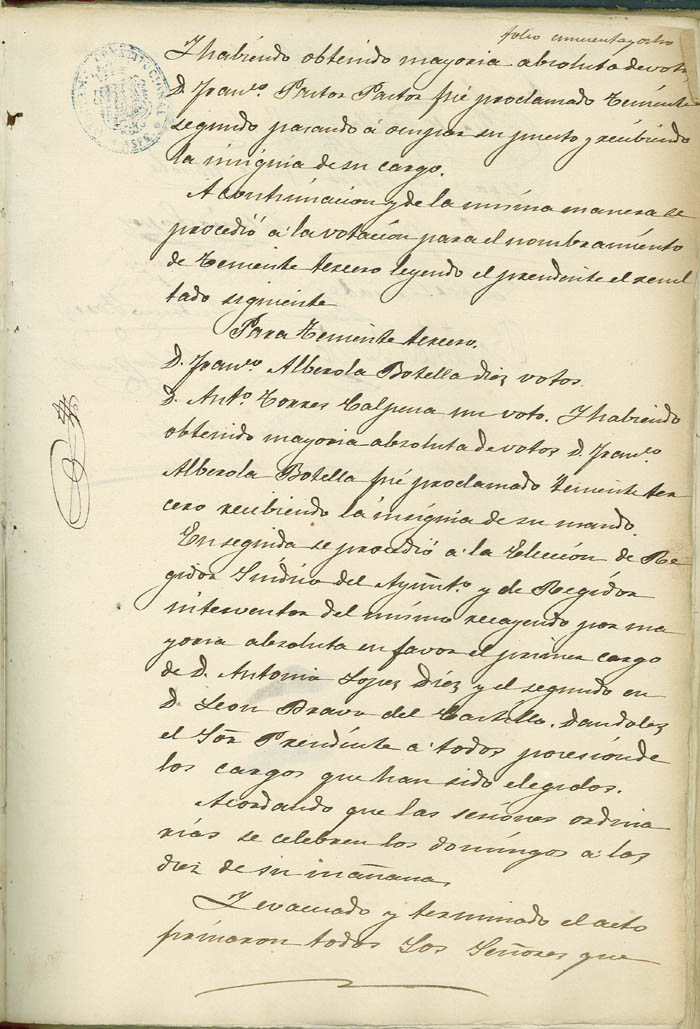 folio cincuenta y ocho
Y habiendo obtenido mayoria absoluta de votos
D. Franco. Pastor Pastor fué proclamado Teniente
segundo pasando á ocupar su puesto y recibiendo
la insignia de su cargo.
A continuacion y de la misma manera se
procedió á la votación para el nombramiento
de Teniente tercero leyendo el presidente el resul
tado siguiente
Para Teniente tercero.
D. Franco. Alberola Botella diez votos.
D. Anto. Torres Calpena un voto. Y habiendo
obtenido mayoria absoluta de votos D. Franco.
Alberola Botella fué proclamado Teniente ter
cero recibiendo la insignia de su mando.
En seguida se procedió á la Elección de Re
gidor Sindico del Ayuñto. y de Regidor
interventor del mismo recayendo por ma
yoria absoluta en favor el primer cargo
de D. Antonio Lopez Diez y el segundo en
D. Leon Bravo del Castillo. Dandoles
el Sor. Presidente á todos posesión de
los cargos que han sido elegidos.
Acordando que las sesiones ordina
rias se celebren los domingos á las
diez de su mañana.
Y evacuado y terminado el acto
firmaron todos Los Señores que